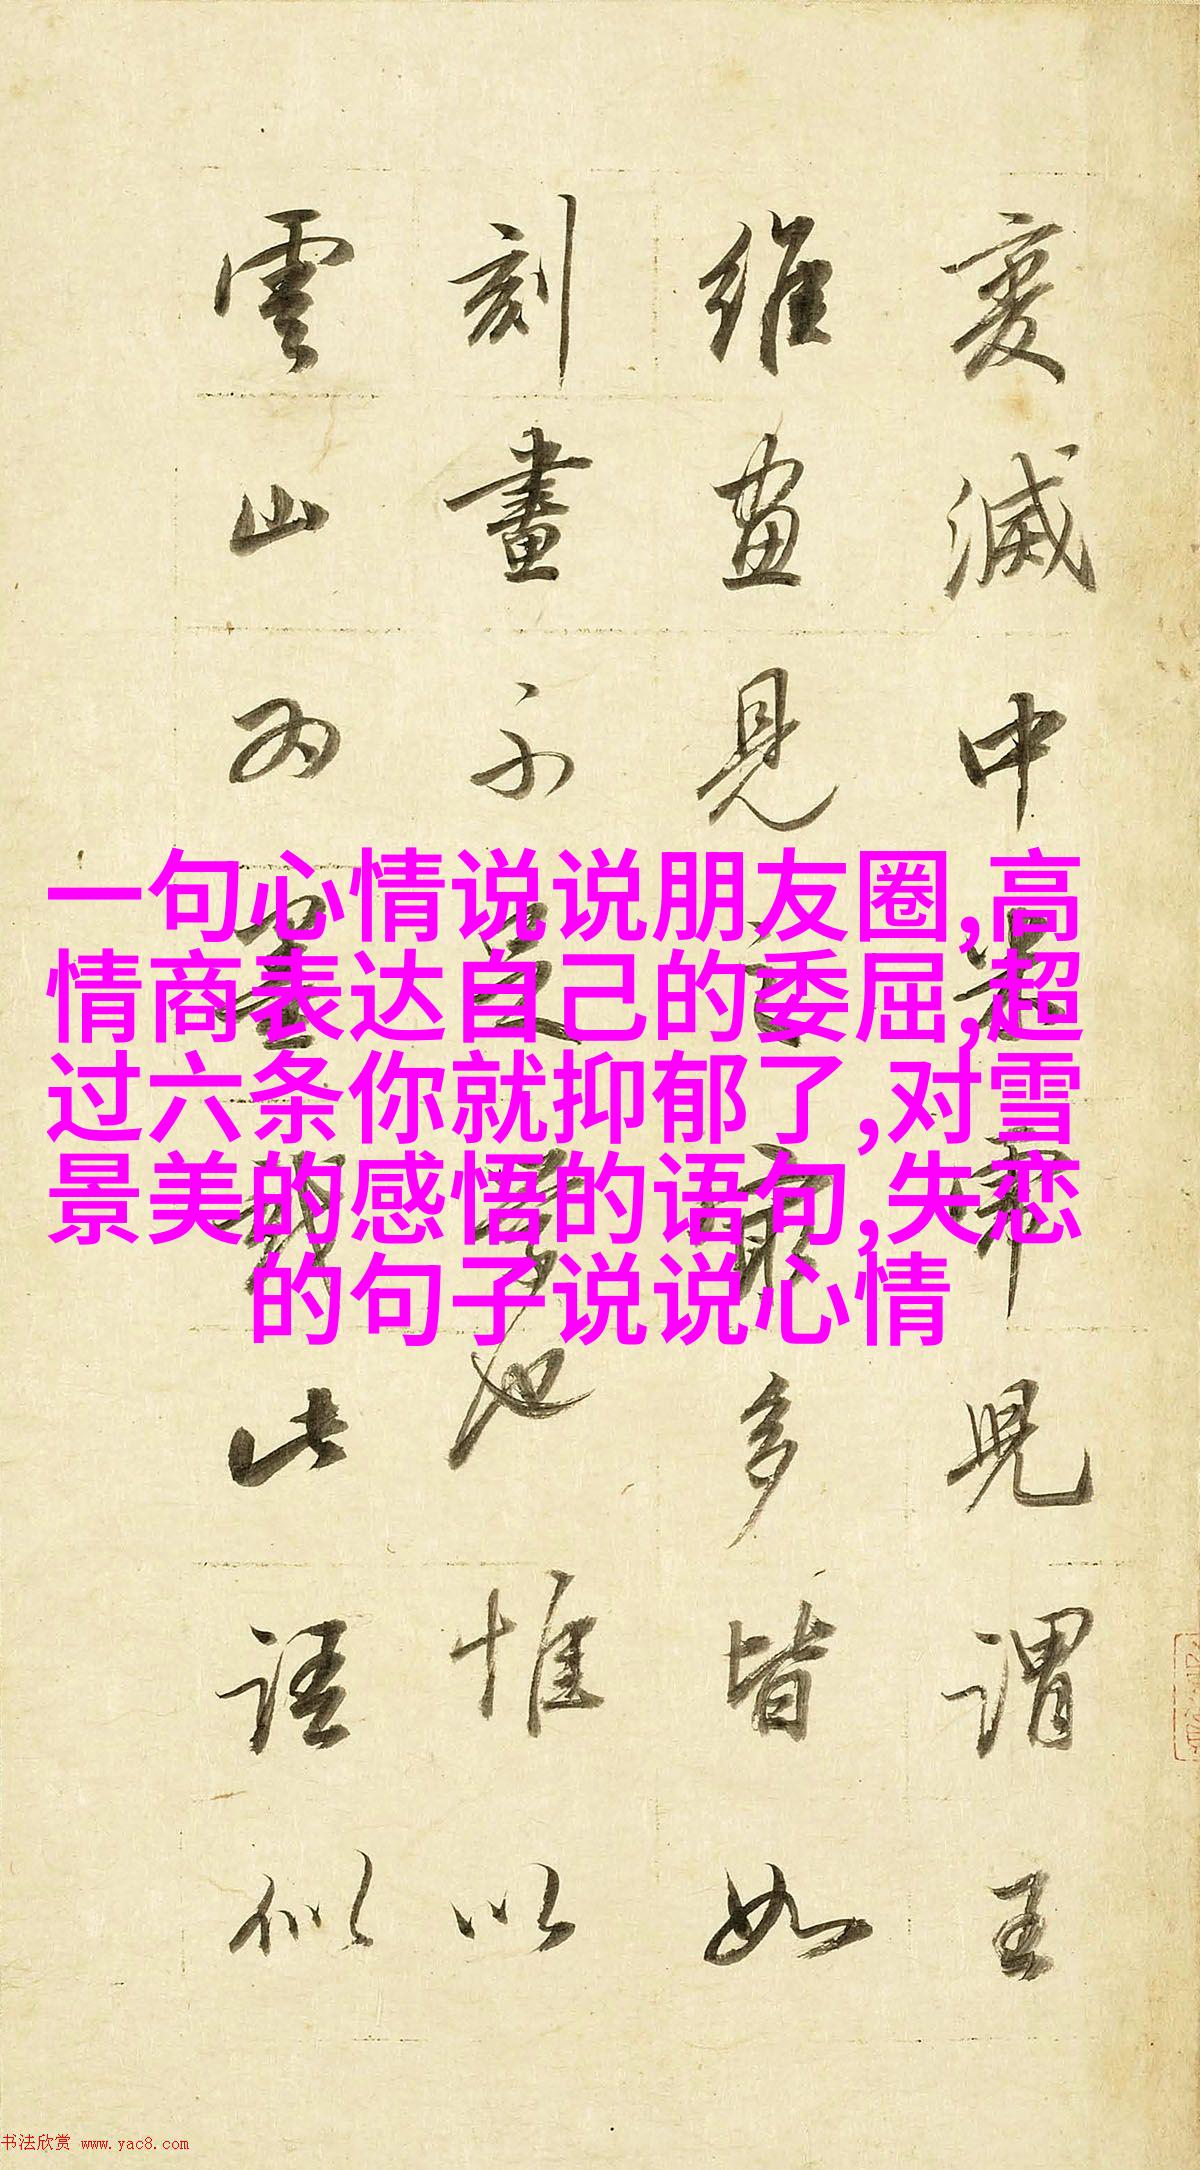 變滅中常兒謂王
維畫見之最多皆如
刻畫不足學也惟以
雲山為墨戲此語似
一句心情说说朋友圈,高
情商表达自己的委屈,超
过六条你就抑郁了,对雪
景美的感悟的语句,失恋
的句子说说心情
书法欣赏 www.yac8.com